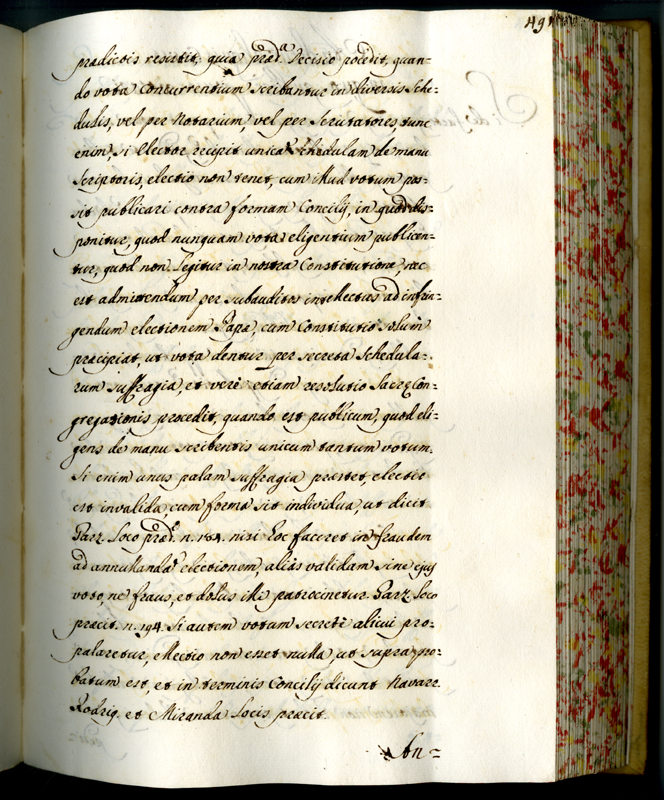 491
prædictis resistit, quia præd.ª Decisio procedit, quan-
do vota concurrentium scribantur in diversis sche-
dulis, vel per Notarium, vel per Scrutatores, tunc
enim, si Elector recipit unica schedulam de manu
scriptoris, electio non tenet, cum illud votum pos-
sit publicari contra formam Concilij, in quo dis-
ponitur, quod nunquam vota eligentium publicen-
tur, quod non legitur in nostra Constitutione, nec
est admittendum per subauditos intellectus ad infrin-
gendum electionem Papæ, cum Constitutio solum
præcipiat, ut vota dentur per secreta schedula-
rum suffragia, et verè etiam resolutio Sacræ Con-
gregationis procedit, quando est publicum, quod eli-
gens de manu scribentis unicum tantum votum.
Si enim unus palam suffragia præstet, electio
est invalida, cum forma sit individua, ut dicit
Garz. loco præd.º n. 184. nisi hoc faceret in fraudem
ad annullandã electionem, aliàs validam sine ejus
voto, ne fraus, et dolus illi patrocinetur. Garz. loco
præcit. n. 194. Si autem votum secretè alicui pro-
palaretur, electio non esset nulla, ut supra pro-
batum est, et in terminis Concilij dicunt Navarr.
Rodrig. et Miranda locis præcit.